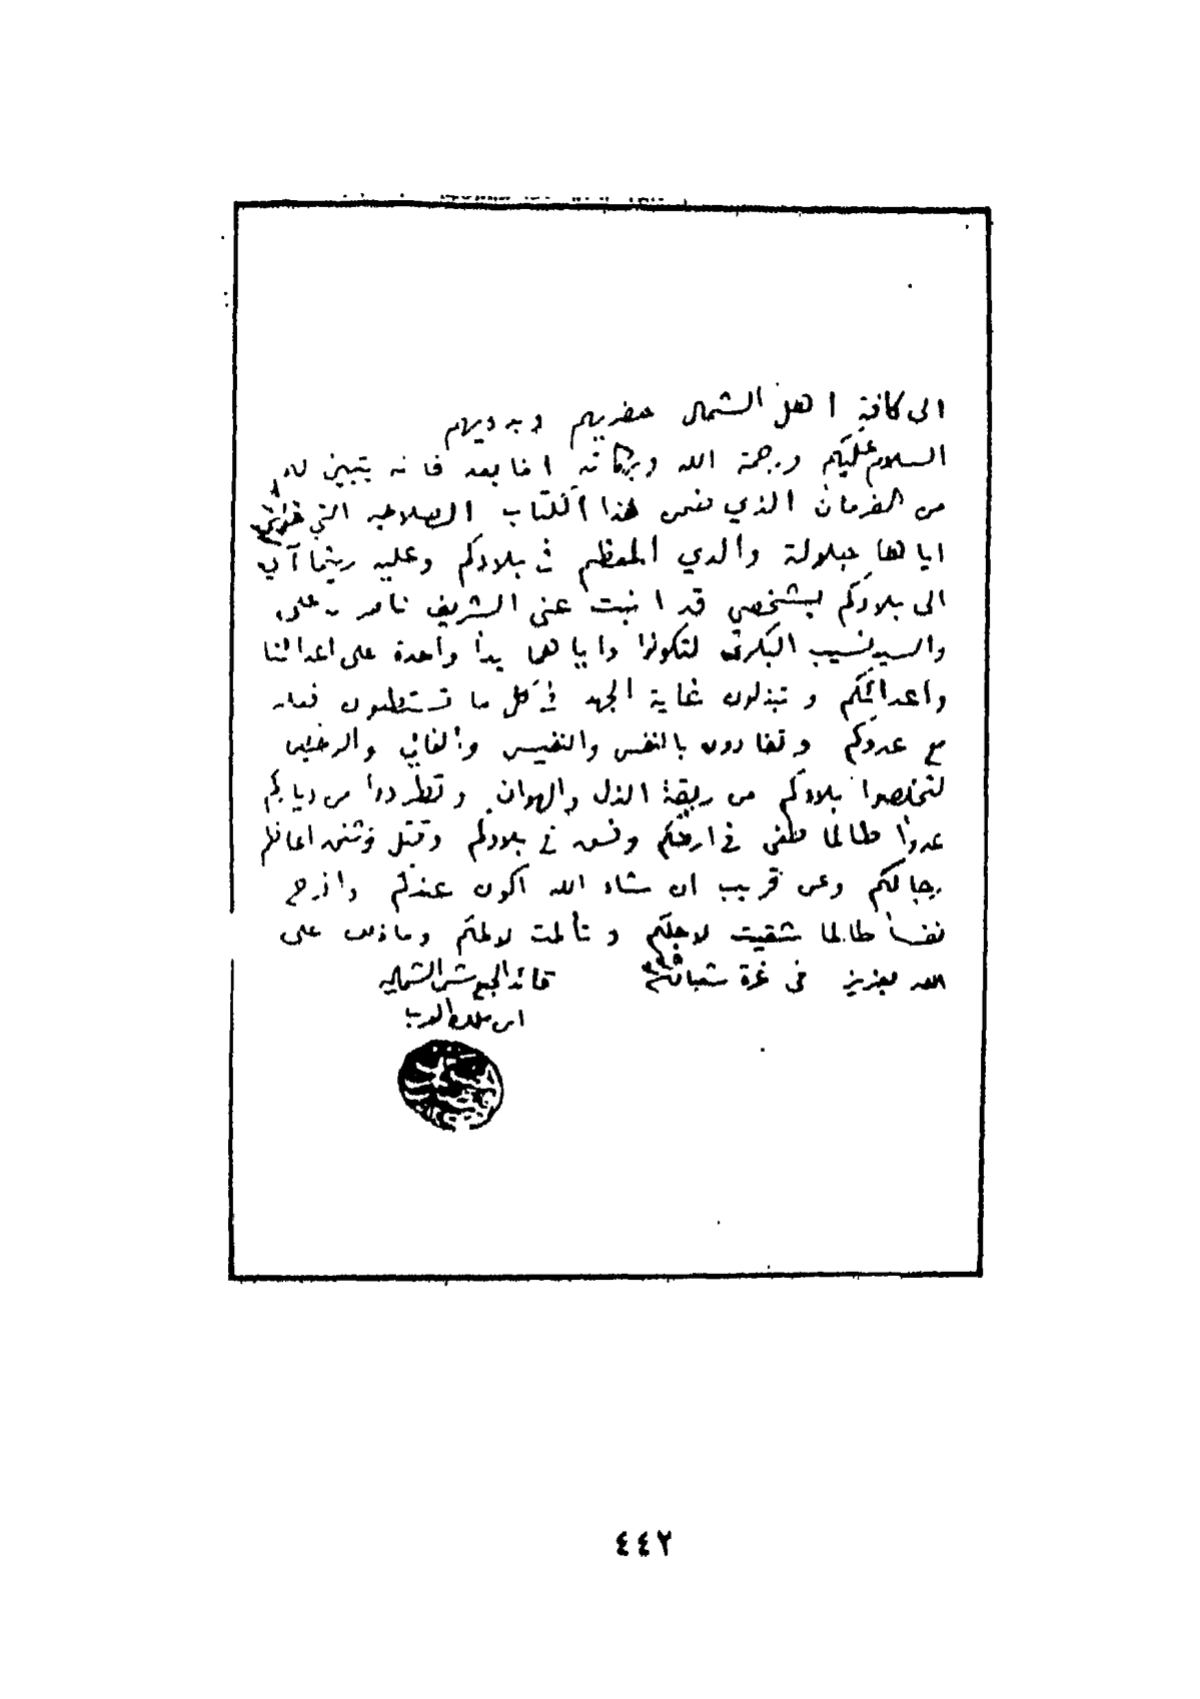 الى كافة اهل الشمال حضريهم وبدويهم
السلام عليكم ورحمة الله وبركاته اما بعد فانه يتبين لكم
من الفرمان الذي ضمن هذا الكتاب الصلاحية التي خولني
اياها جلالة والدي المعظم في بلادكم وعليه ريثما آتي
الى بلادكم بشخصي قد انبت عني الشريف ناصر بن علي
والسيد نسيب البكري لتكونوا واياهما يدا واحدة على اعدائنا
واعدائكم وتبذلون غاية الجهد في كل ما تستطيعون فعله
مع عدوكم وتفادون بالنفس والنفيس والغالي والرخيص
لتخلصوا بلادكم من ربقة الذل والهوان وتطردوا من دياركم
عدوا طالما طغى في ارضكم وفسق في بلادكم وقتل وشنق اعاظم
رجالكم وعن قريب ان شاء الله اكون عندكم وافرح
نفسا طالما شقيت لاجلكم وتألمت لالمكم وما ذلك على
الله بعزيز في غرة شعبان ٣٣٥ قائد الجيوش الشمالية
ابن ملك العرب
٤٤٢